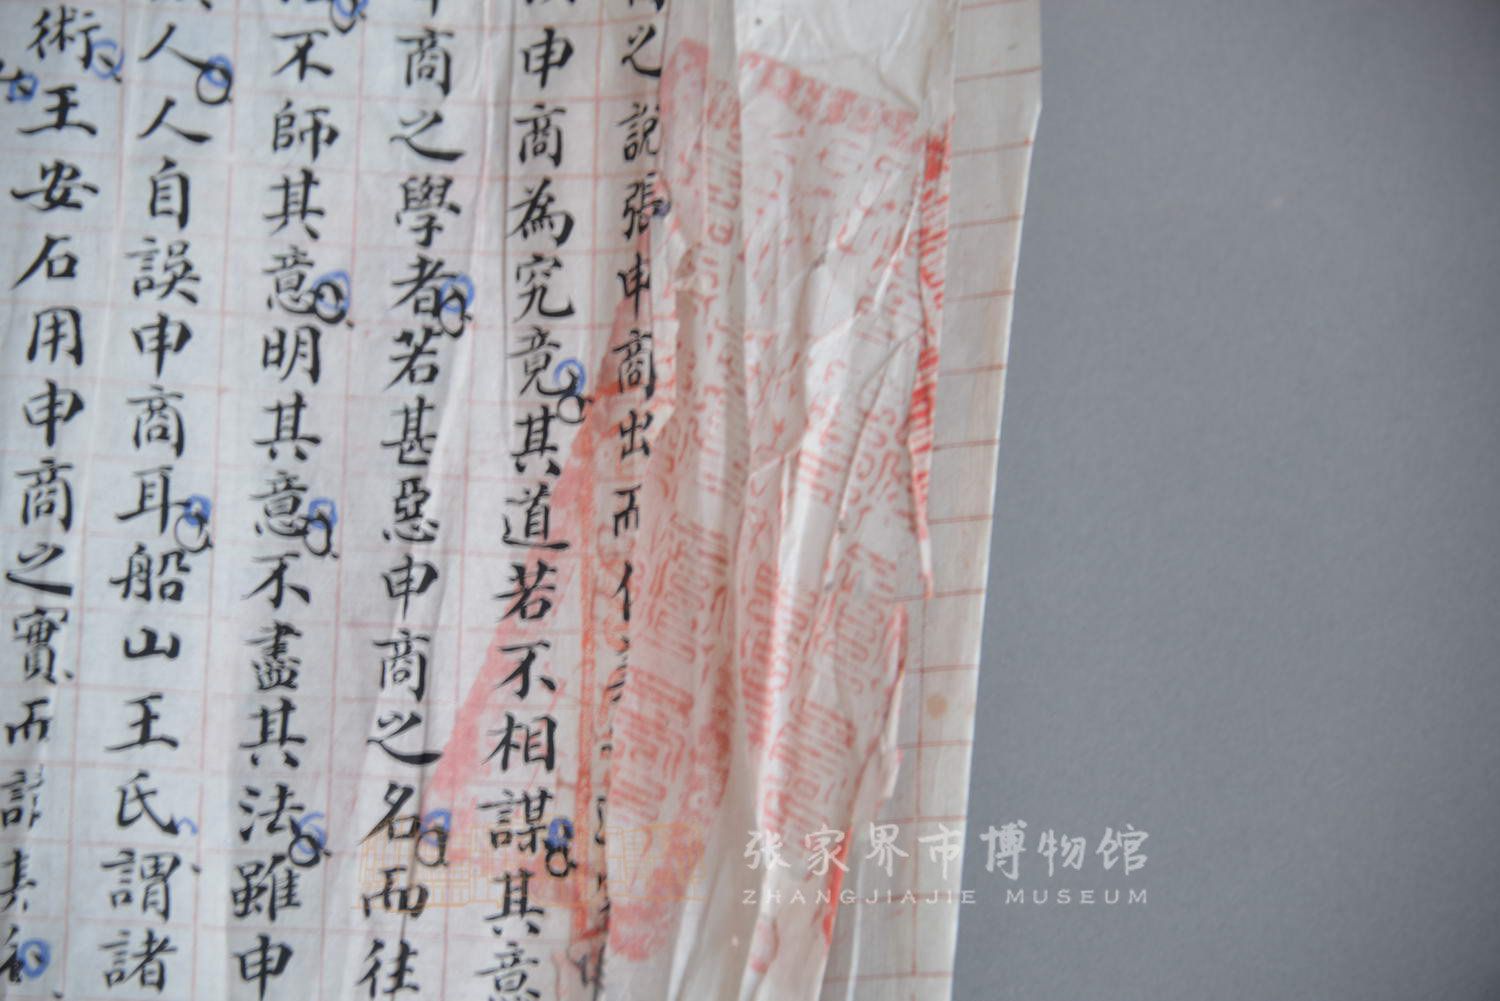 之說張申商出而
申商為究竟其道若不相謀其意
商之學者若甚惡申商之名而往
不師其意明其意不盡其法雖申
人人自誤申商耳船山王氏謂諸
術王安石用申商之實而諱其
张家界市博物馆
ZHANGJIAJIE MUSEUM